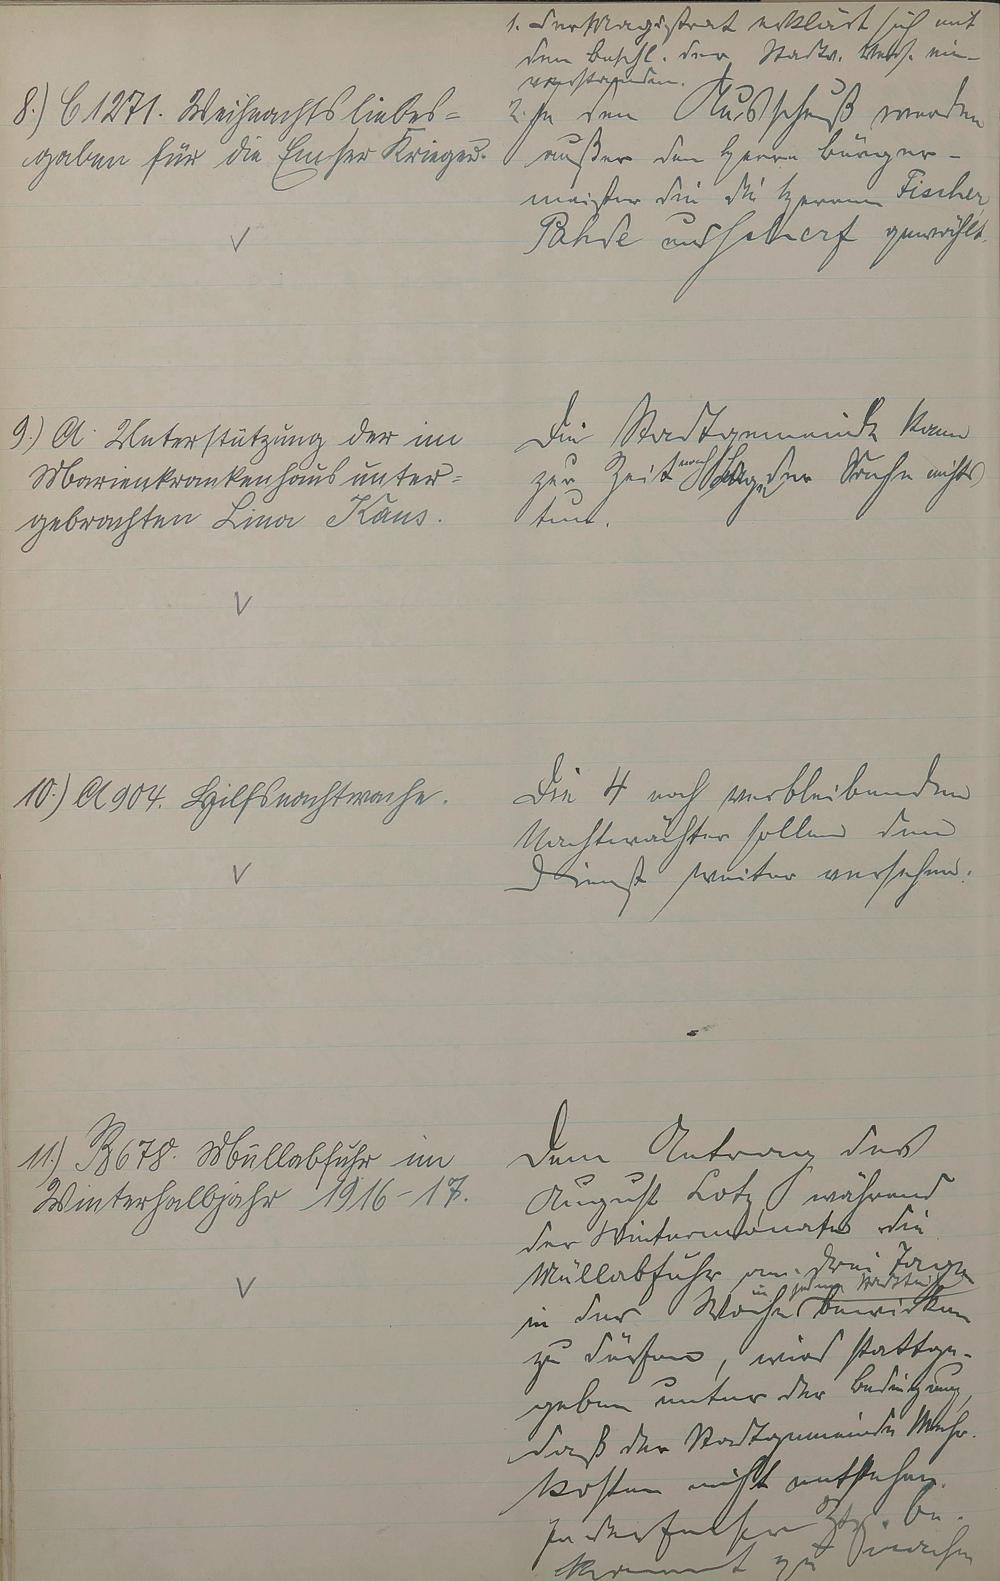 8.) C 1271. Weihnachtsliebes=
gaben für die Emser Krieger.
1. Der Magistrat erklärt sich mit
dem Beschl. der Stadtv. Vers. ein-
verstanden.
2. In den Ausschuß werden
außer dem Herrn Bürger-
meister die Herren Fischer
und gewählt.
9.) A. Unterstützung der im
Marienkrankenhaus unter=
gebrachten Lina Kaus.
Die Stadtgemeinde kann
zur Zeit nach Lage der Sache nichts
tun.
10.) A 904. Hilfsnachtwache.
Die 4 noch verbleibenden
Nachtwächter sollen den
Dienst weiter versehen.
11.) B 678. Müllabfuhr im
Winterhalbjahr 1916-17.
Dem Antrag des
August Lotz während
der Wintermonate die
Müllabfuhr an drei Tagen
in der Woche in jedem Stadtteil bewirken
zu dürfen, wird stattge-
geben unter der Bedingung,
daß der Stadtgemeinde Mehr-
kosten nicht entstehen.
In der Emser Ztg. be-
kannt zu machen